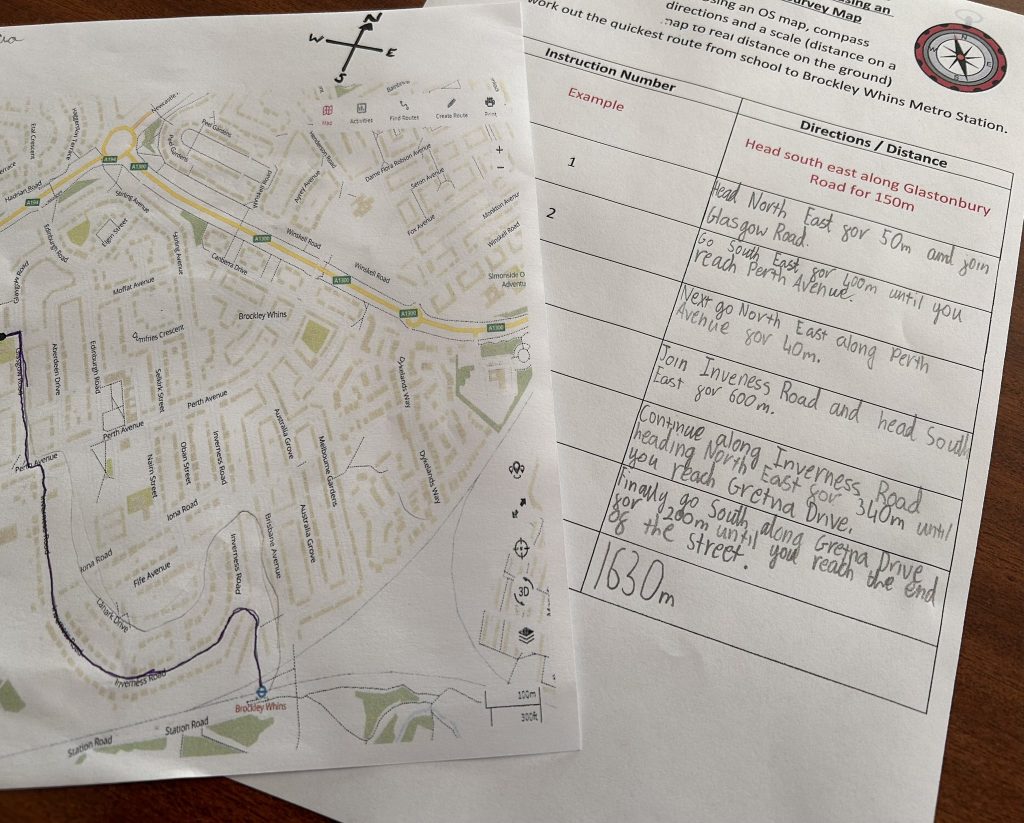 N
W
E
S
Map
Activities
Find Routes
Create Route
Print
Newcastle
Peel Gardens
Peel Gardens
Etal Crescent
Henderson Road
Dame Flora Robson Avenue
Seton Avenue
Winskell Road
Airey Avenue
Fox Avenue
Monkton Avenue
Winskell Road
A194
A1300
A194
Stirling Avenue
Edinburgh Road
Elgin Street
Stirling Avenue
A1300
Winskell Road
Canberra Drive
A1300
Winskell Road
Simonside
Moffat Avenue
Brockley Whins
A1300
A1300
Glasgow Road
Aberdeen Drive
Edinburgh Road
Selkirk Street
Perth Avenue
Perth Avenue
Perth Avenue
Dykelands Way
Australia Grove
Melbourne Gardens
Dykelands Way
Nairn Street
Oban Street
Inverness Road
Iona Road
Iona Road
Fife Avenue
Lanark Drive
Inverness Road
Brisbane Avenue
Australia Grove
Inverness Road
Brockley Whins
Station Road
Station Road
3D
100m
300ft
sing an
urvey Map
sing an OS map, compass
directions and a scale (distance on a
map to real distance on the ground)
work out the quickest route from school to Brockley Whins Metro Station.
Instruction Number
Directions / Distance
Example
Head south east along Glastonbury
Road for 150m
1
Head North East for 50m and join
Glasgow Road.
2
Go South East for 400m until you
reach Perth Avenue.
Next go North East along Perth
Avenue for 40m.
Join Inveness Road and head South
East for 600m.
Continue along Inverness Road
heading North East for 340m until
you reach Gretna Drive.
Finally go South along Gretna Drive
for 200m until you reach the end
of the street.
1630m